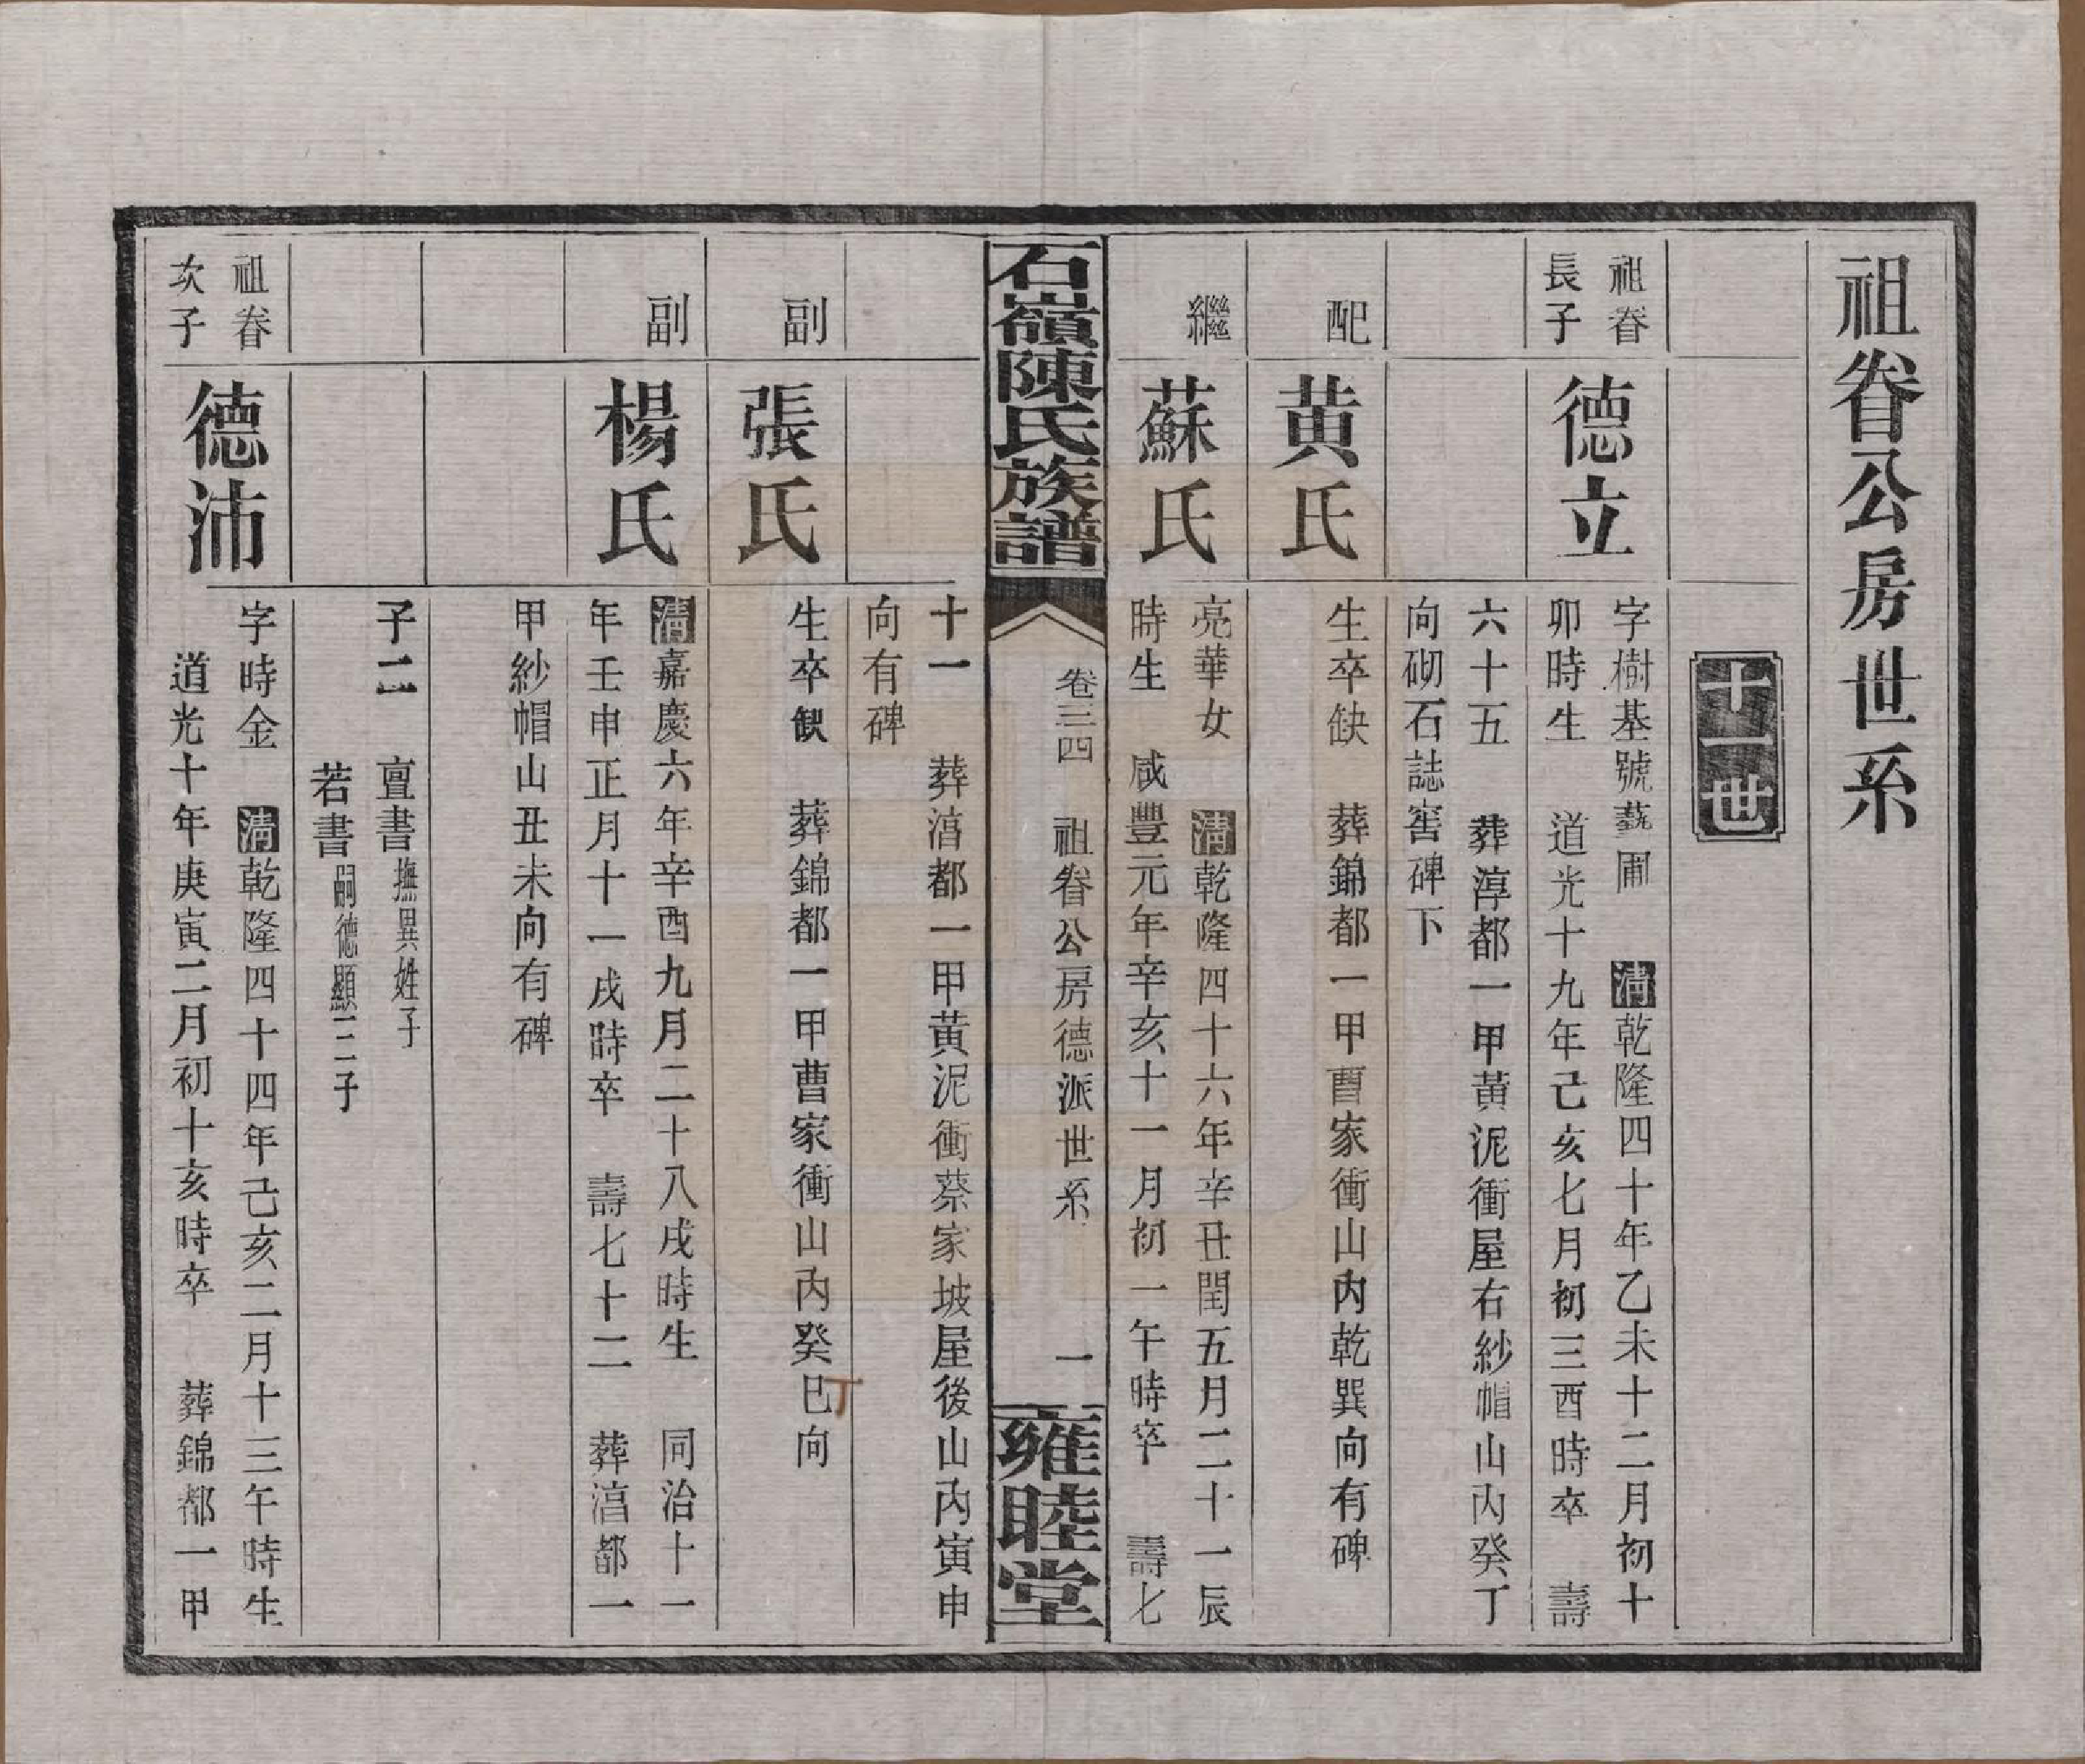 祖眷公房世系
十一世
祖眷
長子
德立
字樹基號蓺圃　清乾隆四十年乙未十二月初十
卯時生　道光十九年己亥七月初三酉時卒　壽
六十五　葬淳都一甲黃泥衝屋右紗帽山內癸丁
向砌石誌窖碑下
配
黄氏
生卒缺　葬錦都一甲曹家衝山內乾巽向有碑
繼
蘇氏
亮華女　清乾隆四十六年辛丑閏五月二十一辰
時生　咸豐元年辛亥十一月初一午時卒　壽七
石嶺陳氏族譜
卷三四　祖眷公房德派世系　一
雍睦堂
十一　葬淳都一甲黃泥衝蔡家坡屋後山內寅申
向有碑
副
張氏
生卒缺　葬錦都一甲曹家衝山內癸巳向
丁
副
楊氏
清嘉慶六年辛酉九月二十八戌時生　同治十一
年壬申正月十一戌時卒　壽七十二　葬淳都一
甲紗帽山丑未向有碑
子二　亶書撫異姓子
若書嗣德顯三子
祖眷
次子
德沛
字時金　清乾隆四十四年己亥二月十三午時生
道光十年庚寅二月初十亥時卒　葬錦都一甲